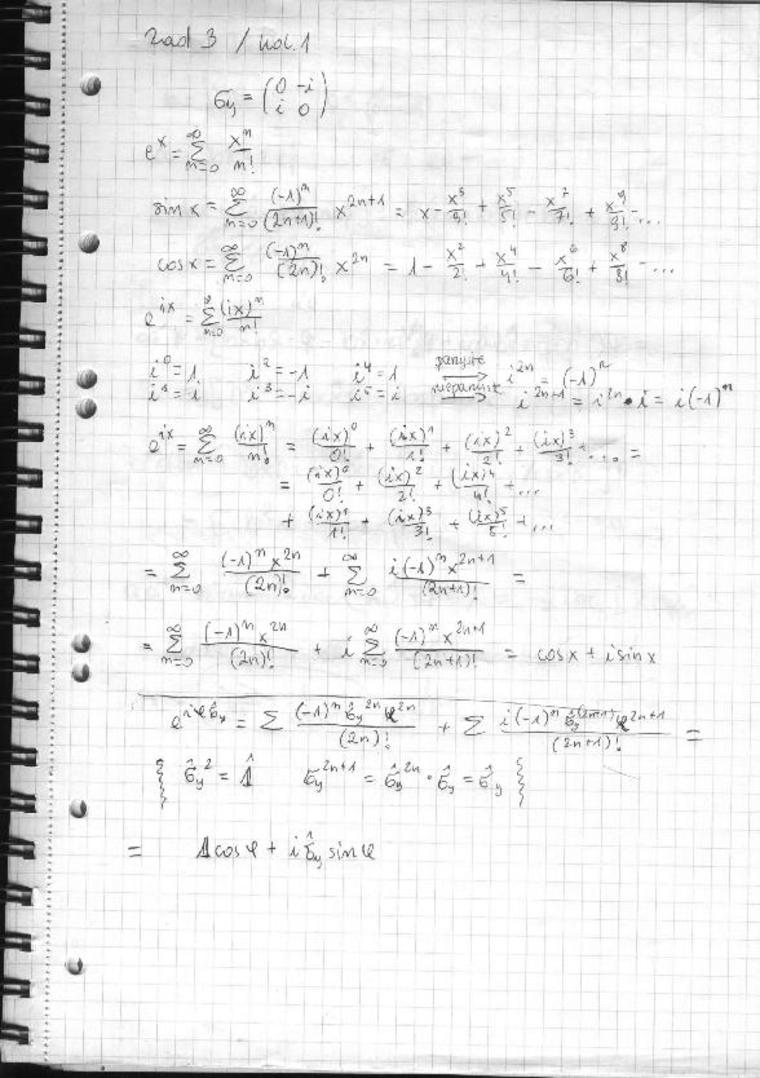 Zad 3 / kol. 1
σ_y = (0 -i
i 0)
e^x = Σ_{n=0}^{∞} x^n/n!
sin x = Σ_{n=0}^{∞} (-1)^n/(2n+1)! x^{2n+1} = x - x^3/3! + x^5/5! - x^7/7! + x^9/9! - ...
cos x = Σ_{n=0}^{∞} (-1)^n/(2n)! x^{2n} = 1 - x^2/2! + x^4/4! - x^6/6! + x^8/8! - ...
e^{ix} = Σ_{n=0}^{∞} (ix)^n/n!
i^0 = 1 i^2 = -1 i^4 = 1 parzyste → i^{2n} = (-1)^n
i^1 = i i^3 = -i i^5 = i nieparzyste → i^{2n+1} = i^{2n} • i = i(-1)^n
e^{ix} = Σ_{n=0}^{∞} (ix)^n/n! = (ix)^0/0! + (ix)^1/1! + (ix)^2/2! + (ix)^3/3! + ... =
= (ix)^0/0! + (ix)^2/2! + (ix)^4/4! + ...
+ (ix)^1/1! + (ix)^3/3! + (ix)^5/5! + ...
= Σ_{n=0}^{∞} (-1)^n x^{2n}/(2n)! + Σ_{n=0}^{∞} i(-1)^n x^{2n+1}/(2n+1)! =
= Σ_{n=0}^{∞} (-1)^n x^{2n}/(2n)! + i Σ_{n=0}^{∞} (-1)^n x^{2n+1}/(2n+1)! = cos x + i sin x
e^{iφσ̂_y} = Σ (-1)^n σ̂_y^{2n} φ^{2n}/(2n)! + Σ i(-1)^n σ̂_y^{(2n+1)} φ^{2n+1}/(2n+1)! =
{ σ̂_y^2 = 1̂ σ_y^{2n+1} = σ̂_y^{2n} • σ̂_y = σ̂_y }
= 1 cos φ + i σ̂_y sin φ